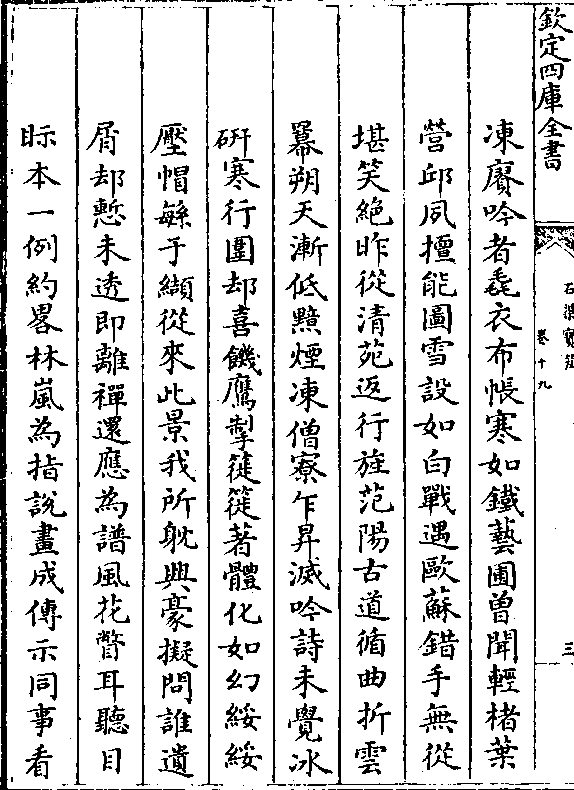 欽定四庫全書
石渠寳笈
卷十九
三
凍賡吟者毳衣布帳寒如鐵藝圃曽聞輕楮葉
營邱夙擅能圖雪設如白戰遇歐蘇錯手無從
堪笑絶昨從清苑返行旌范陽古道循曲折雲
羃朔天漸低黯煙凍僧寮乍昇滅吟詩未覺冰
硏寒行圍却喜饑鷹掣簁簁著體化如幻綏綏
壓帽緐于纈從來此景我所躭興豪擬問誰遺
屑却慙未透即離禪還應為譜風花瞥耳聽目
眎本一例約畧林嵐為指說畫成傳示同事看